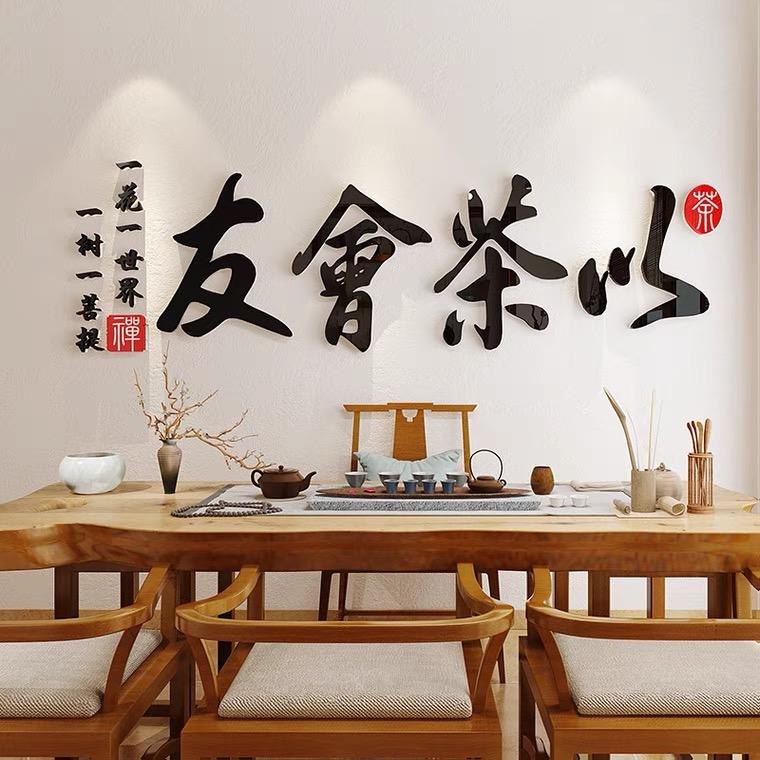 茶
以茶會友
一花一世界
一树一菩提
禪